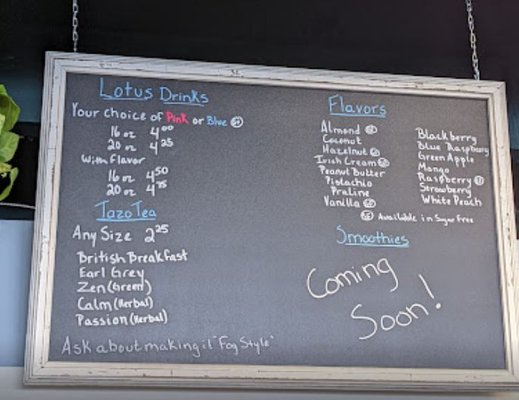 Lotus Drinks
Your Choice of Pink or Blue SF
16 oz 4.00
20 oz 4.25
With Flavor
16 oz 4.50
20 oz 4.75
Tazo Tea
Any Size 2.25
British Breakfast
Earl Grey
Zen (Green)
Calm (Herbal)
Passion (Herbal)
Ask about making it "Fog Style"
Flavors
Almond SF
Coconut
Hazelnut SF
Irish Cream SF
Peanut Butter
Pistachio
Praline
Vanilla SF
Blackberry
Blue Raspburry
Green Apple
Mango
Raspberry SF
Strawberry
White Peach
SF Available in Sugar Free
Smoothies
Coming
Soon!